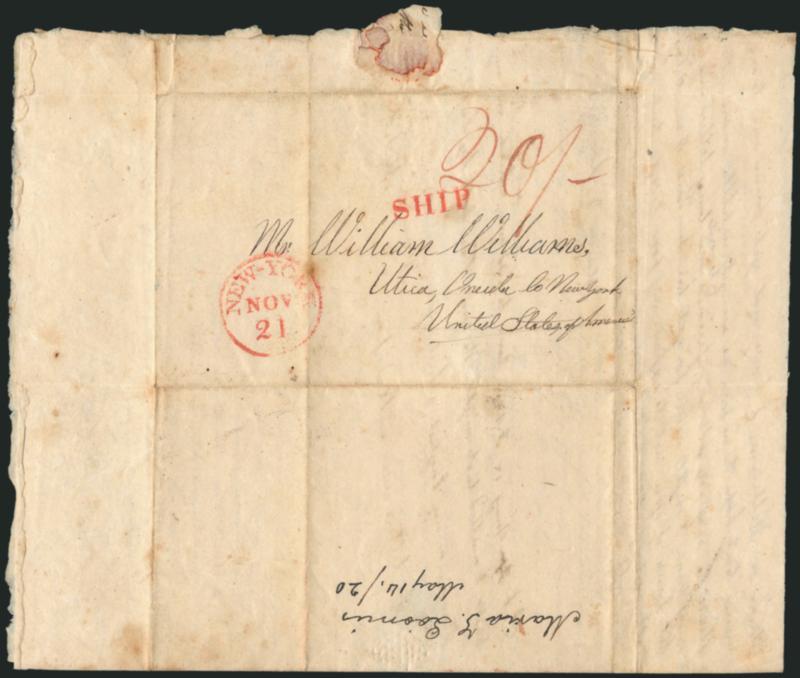 20/-
SHIP
Mr. William Williams,
Utica, Oneida Co New York
United States of America
NEW-YORK
NOV
21
Maria T. Loomis
May 14./20